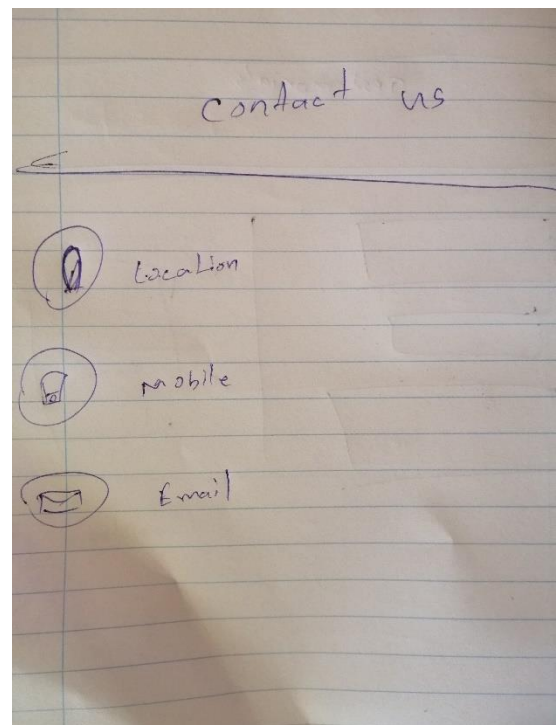 Contact us
Location
Mobile
Email